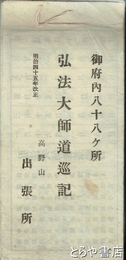 御府内八十八ケ所
弘法大師道巡記
明治四十五年改正
高野山
出張所
とらや書店